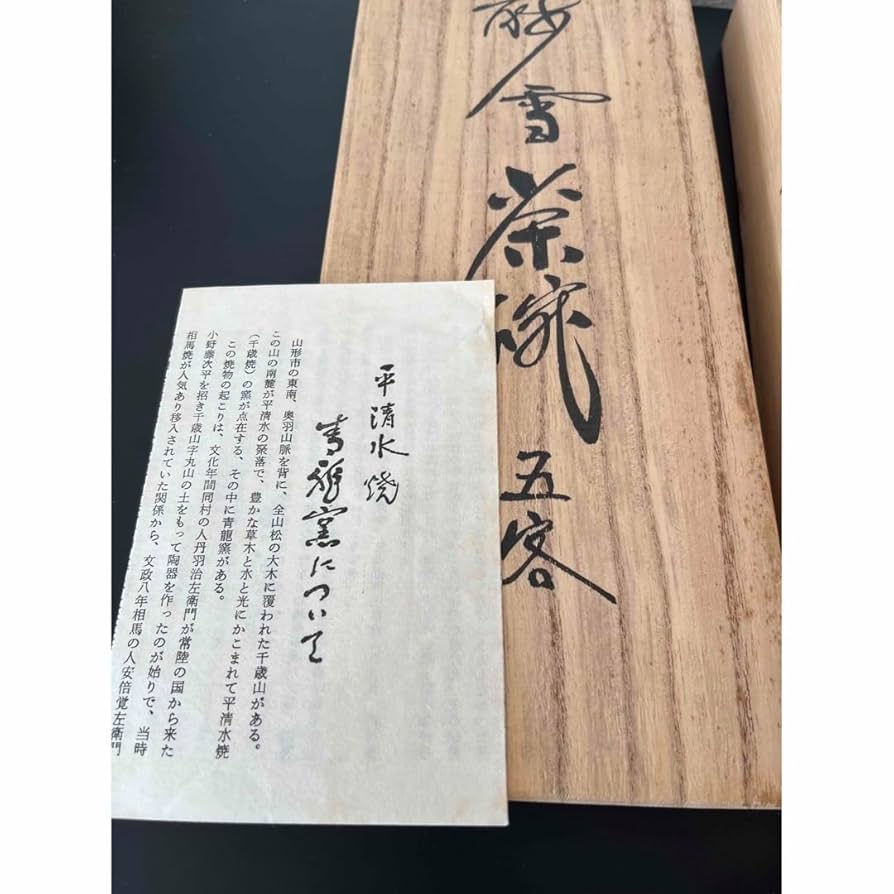 雪茶碗 五客
平清水焼
青龍窯について
山形市の東南、奥羽山脈を背に、全山松の大木に覆われた千歳山がある。
この山の南麓が平清水の聚落で、豊かな草木と水と光にかこまれて平清水焼
(千歳焼)の窯が点在する、その中に青龍窯がある。
この焼物の起こりは、文化年間同村の人丹羽治左衛門が常陸の国から来た
小野藤次平を招き千歳山字丸山の土をもって陶器を作ったのが始りで、当時
相馬焼が人気あり移入されていた関係から、文政八年相馬の人安倍覚左衛門